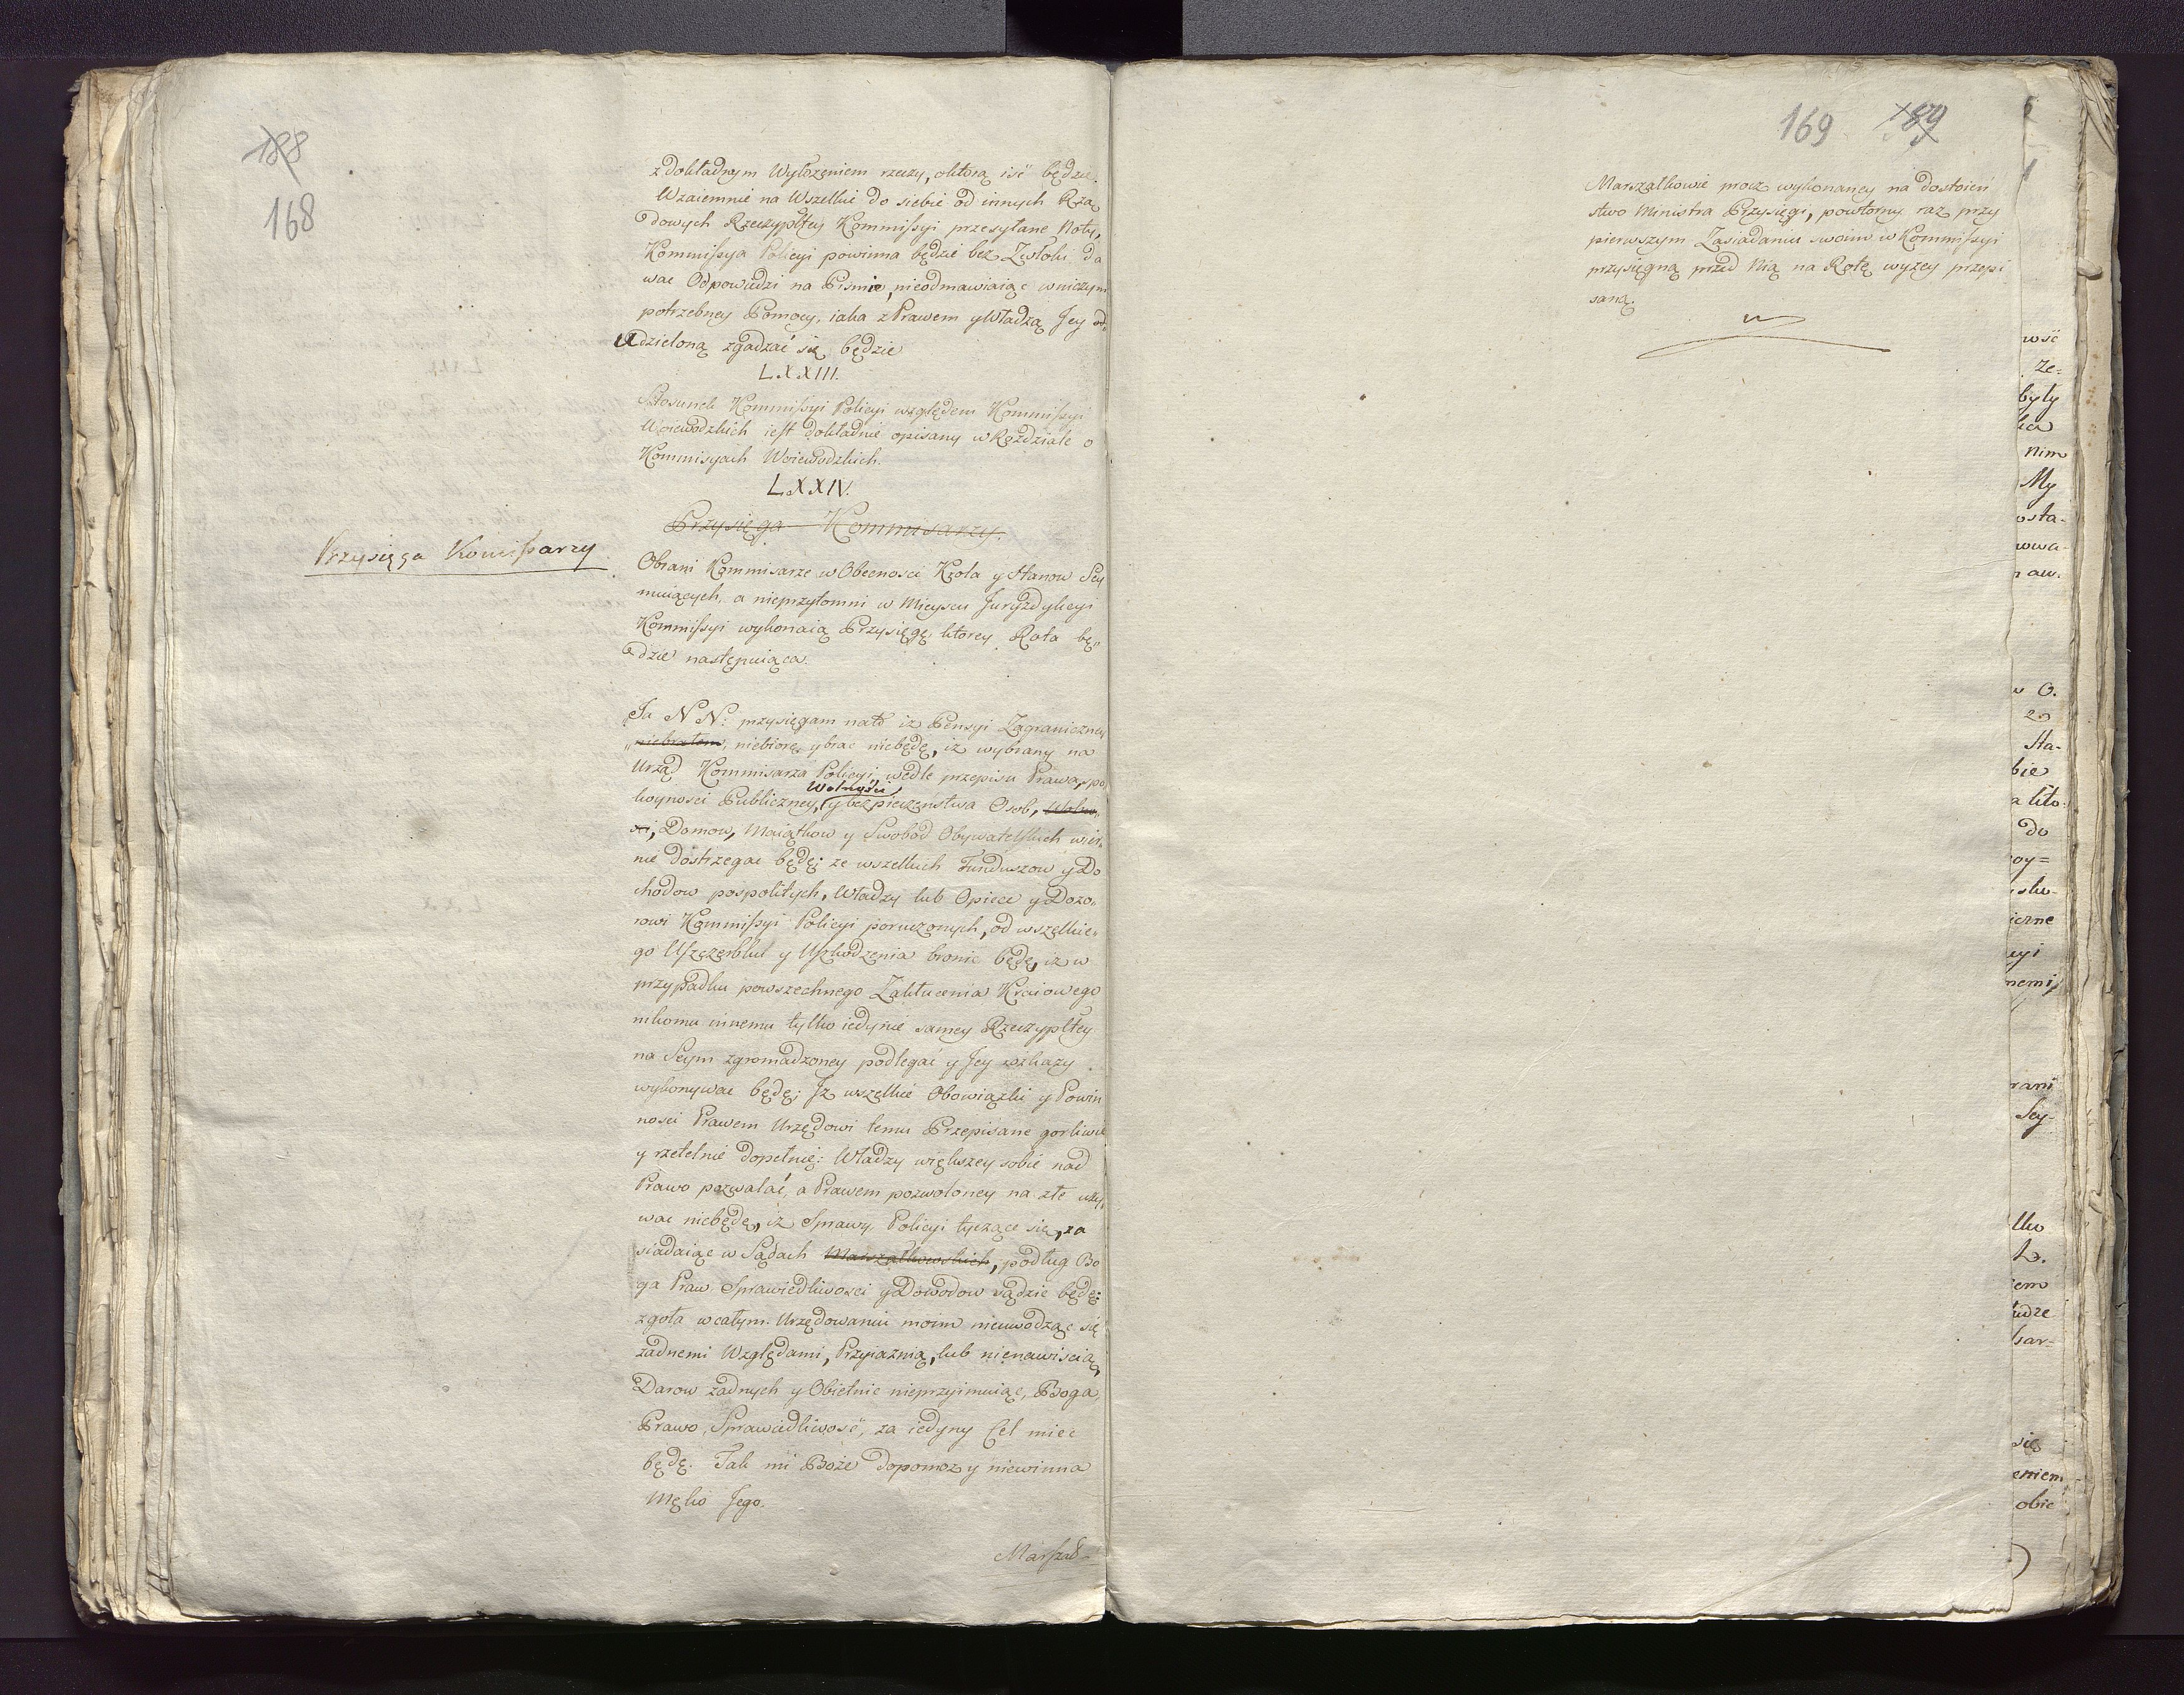 188
168
z dokładnym Wyłożeniem rzeczy, o którą iść będzie.
Wzaiemnie na Wszelkie do siebie od innych Rzą
dowych Rzeczypltey Kommissyi przesyłane Noty,
Kommissya Policyi powinna będzie bez Zwłoki da
wac Odpowiedzi na Pismie, nieodmawiaiąc w niczym
potrzebney Pomocy, iaka z Prawem y Władzą Jey od
Udzieloną zgadzać się będzie
LXXIII.
Stosunek Kommissyi Policyi względem Kommissyi
Woiewodzkich iest dokładnie opisany w Rozdziale o
Kommisyach Woiewodzkich.
LXXIV.
Przysięga Kommisarzy.
Przysięga Komissarzy
Obrani Kommisarze w Obecnosci Krola y Stanow Sey
muiących, a nieprzytomni w Mieyscu Juryzdykcyi
Kommissyi wykonaią Przysięgę, ktorey Rota bę„
dzie następuiąca.
Ja N N: przysięgam na to iż Pensyi Zagraniczney
niebrałem, niebiorę y brac niebędę, iż wybrany na
Urząd Kommisarza Policyi, wedle przepisu Prawa, spo
Wolności
koynosci Publiczney, y bezpieczenstwa Osob, Wolno„
sci, Domow, Maiątkow y Swobod Obywatelskich wier„
nie dostrzegac będę; ze wszelkich Funduszow y Do
chodow pospolitych, Władzy lub Opiece y Dozo„
rowi Kommissyi Policyi poruczonych, od wszelkie„
go Uszczerbku y Uszkodzenia bronic będę, iż w
przypadku powszechnego Zakłucenia Kraiowego
nikomu innemu tylko iedynie samey Rzeczypltey
na Seym zgromadzoney podlegać y Jey rozkazy
wykonywac będę; Jż wszelkie Obowiązki y Powin
nosci Prawem Urzędowi temu Przepisane gorliwie
y rzetelnie dopełnię: Władzy większey sobie nad
Prawo pozwalać, a Prawem pozwoloney na złe uży„
wac niebędę, iż Sprawy Policyi tyczące się, za
siadaiąc w Sądach Marszałkowskich, podług Bo
ga Praw Sprawiedliwosci y Dowodow sądzic będę:
zgoła w całym Urzędowaniu moim nieuwodząc się
żadnemi Względami, Przyiaznią, lub nienawiscią,
Darow żadnych y Obietnic nieprzyimuiąc, Boga,
Prawo, Sprawiedliwość, za iedyny Cel miec
będę. Tak mi Boże dopomoż y niewinna
Męko Jego.
Marszał-
169 189
Marszałkowie procz wykonaney na dostoień
stwo Ministra Przysięgi, powtorny raz przy
pierwszym Zasiadaniu swoim w Kommissyi
przysięgną przed Nią na Rotę wyżey przepi
saną.
wść
Ze=
były
Nim
My
osta-
owa-
aw.
O.
Sta-
bie
a kto-
do
oy=
iczne
nemi
rani
Sey-
L.
iem
udze
sar=
się
eniem
obie